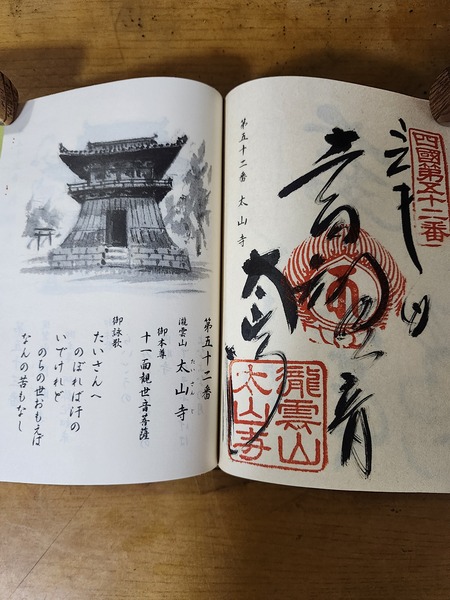 四國第五十二番
太山寺
瀧雲山
太山寺
第五十二番 太山寺
第五十二番
瀧雲山 太山寺
御本尊
十一面観世音菩薩
御詠歌
たいさんへ
のぼれば汗の
いでけれど
のちの世おもえば
なんの苦もなし